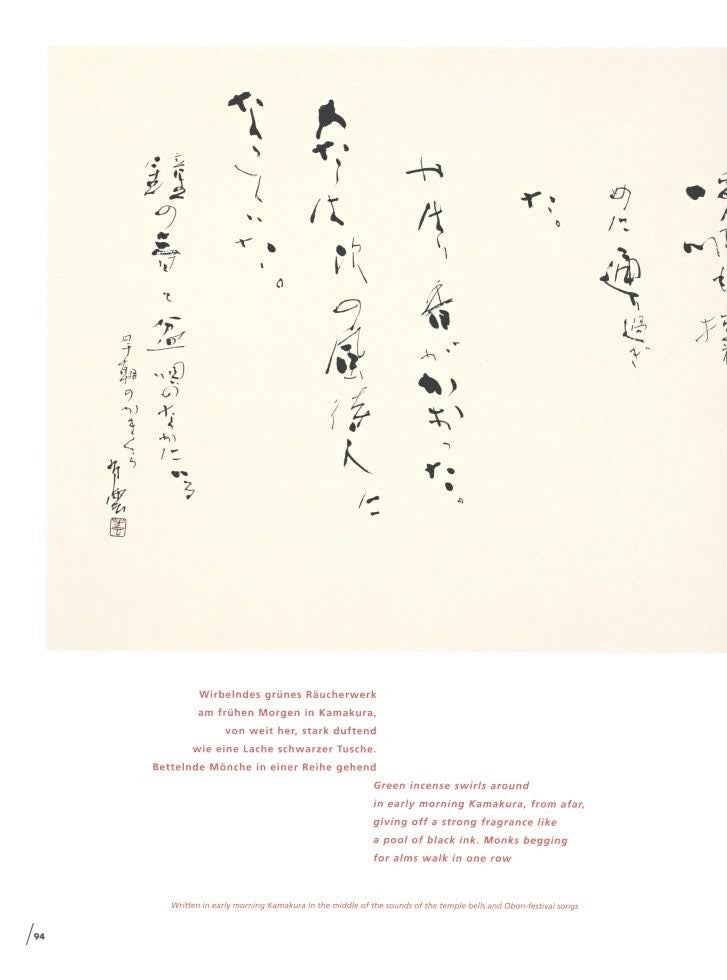 めに通り過ぎ
た。
やはり香がかおった。
次の風待人に
なっていた。
鐘の音と盆唄のなかにいる
早朝のかまくら
Wirbelndes grünes Räucherwerk
am frühen Morgen in Kamakura,
von weit her, stark duftend
wie eine Lache schwarzer Tusche.
Bettelnde Mönche in einer Reihe gehend
Green incense swirls around
in early morning Kamakura, from afar,
giving off a strong fragrance like
a pool of black ink. Monks begging
for alms walk in one row
Written in early morning Kamakura In the middle of the sounds of the temple bells and Obon-festival songs
/94